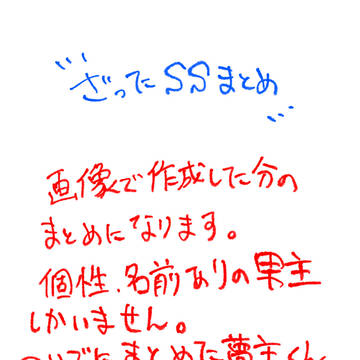 ざったSSまとめ
画像で作成した分の
まとめになります。
個性、名前ありの男主
しかいません。
ついでにまとめた夢主くん